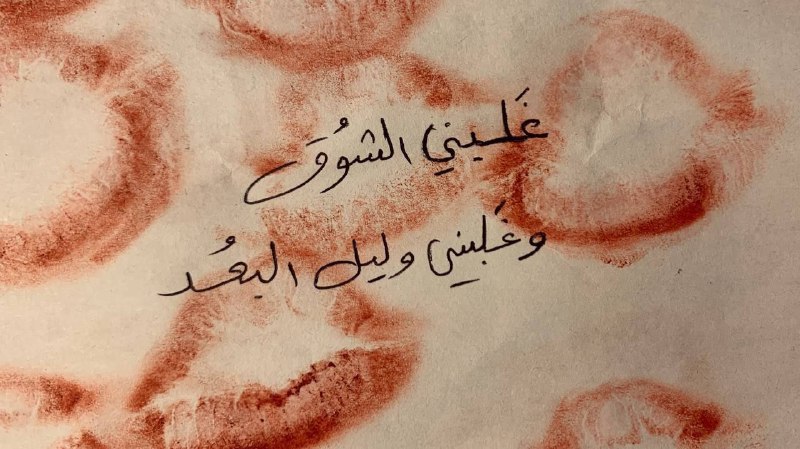 غَلبني الشوُق
وغَلبني وليل البعُد